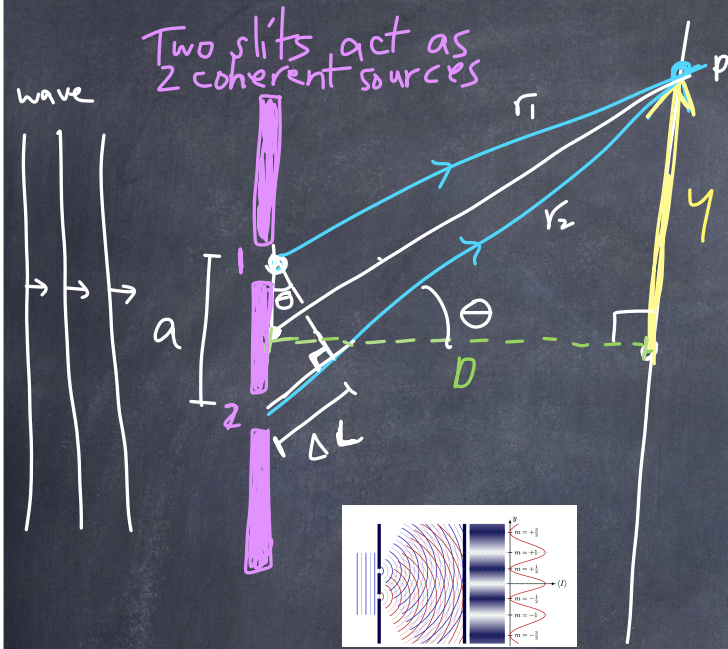 Two slits act as
2 coherent sources
wave
P
r₁
r₂
y
1
θ
a
θ
D
2
ΔL
y
m = +3/2
m = +1
m = +1/2
⟨I⟩
m = −1/2
m = −1
m = −3/2